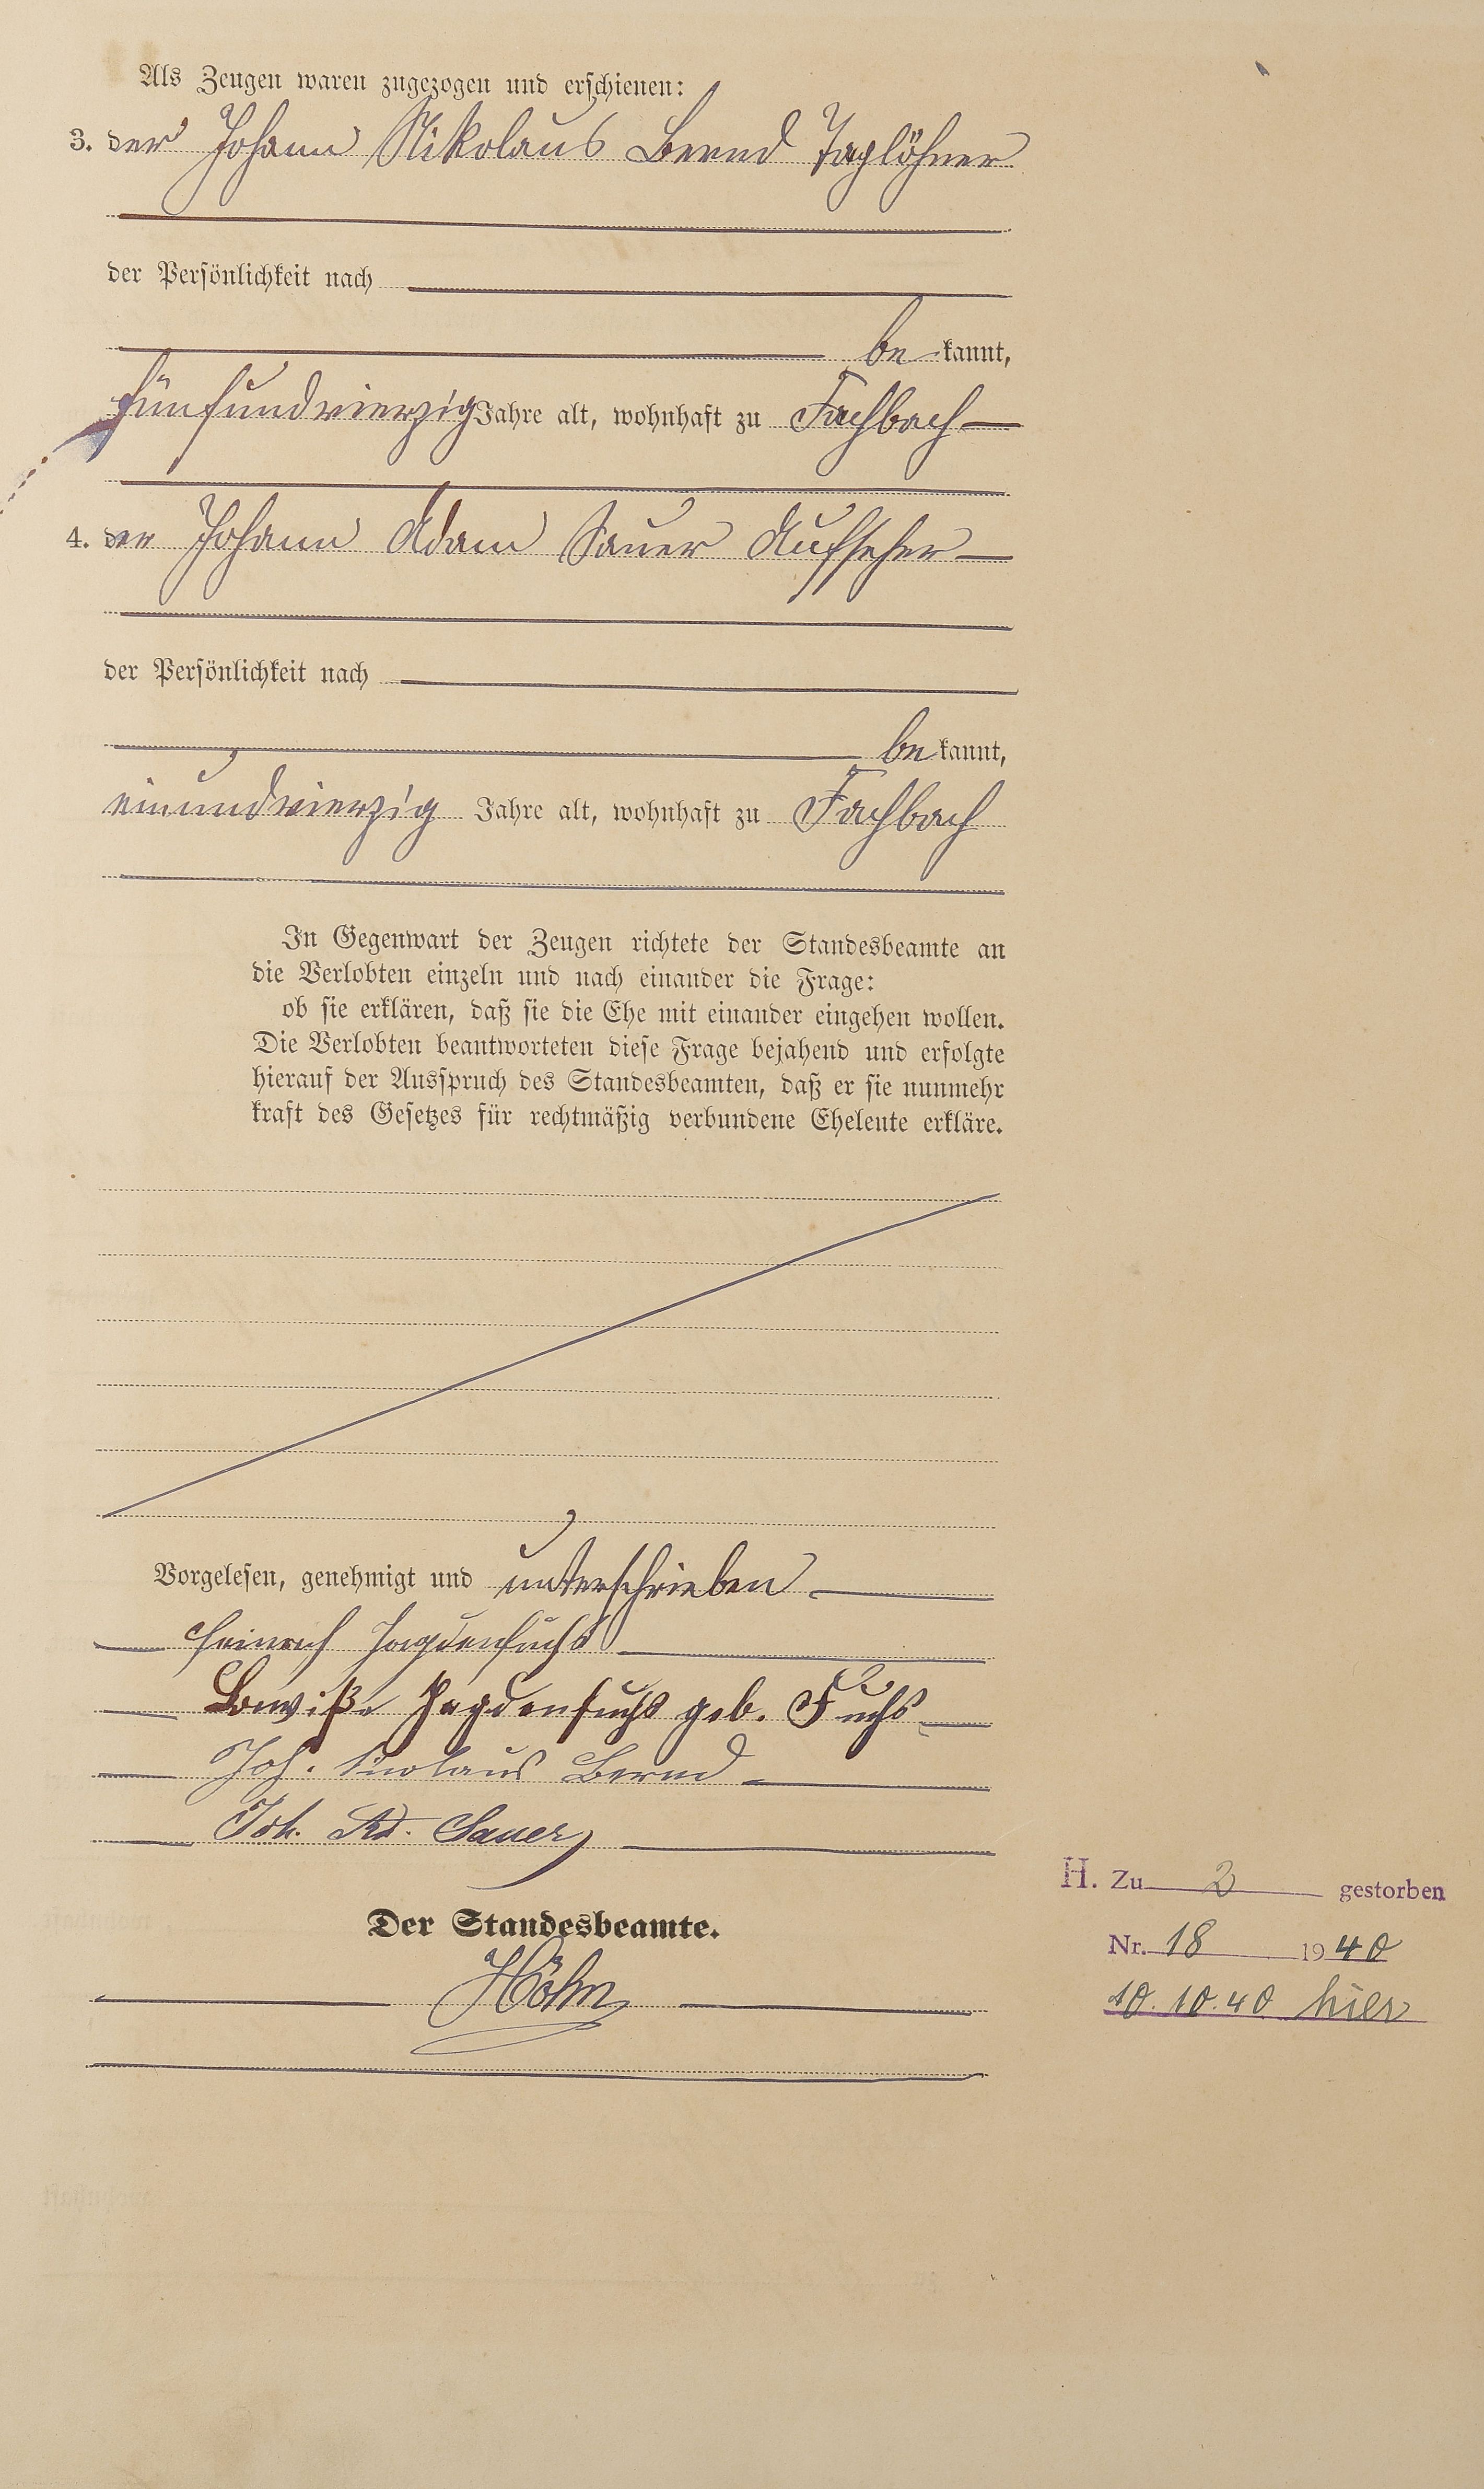 Als Zeugen waren zugezogen und erschienen:
3. der Johann Nikolaus Bernd Taglöhner
der Persönlichkeit nach
be kannt,
fünfundvierzig Jahre alt, wohnhaft zu Fachbach
4. der Johann Adam Sauer Aufseher
der Persönlichkeit nach
be kannt,
einundvierzig Jahre alt, wohnhaft zu Fachbach
In Gegenwart der Zeugen richtete der Standesbeamte an
die Verlobten einzeln und nach einander die Frage:
ob sie erklären, daß sie die Ehe mit einander eingehen wollen.
Die Verlobten beantworteten diese Frage bejahend und erfolgte
hierauf der Ausspruch des Standesbeamten, daß er sie nunmehr
kraft des Gesetzes für rechtmäßig verbundene Eheleute erkläre.
Vorgelesen, genehmigt und unterschrieben
Heinrich Jagdenfuchs
Lowiße Jagdenfuchs geb. Fuchs
Joh. Nicolaus Bernd
Joh. Ad. Sauer
Der Standesbeamte.
Höhn
H. Zu 2 gestorben
Nr. 18 1940
10.10.40 hier